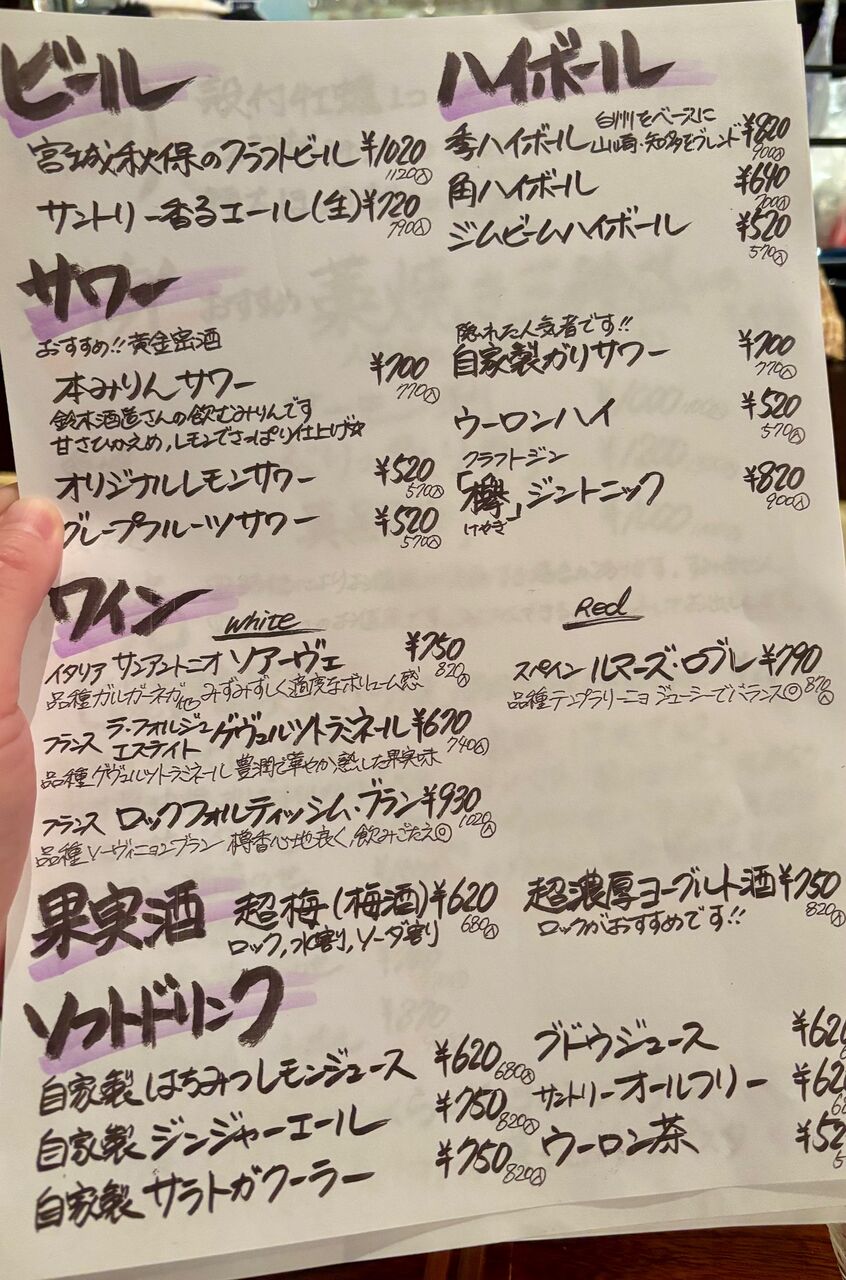 ビール
宮城秋保のクラフトビール ¥1020
1120入
サントリー香るエール(生) ¥720
790入
ハイボール
季ハイボール 白州をベースに ¥820
山崎・知多をブレンド 900入
角ハイボール ¥640
700入
ジムビームハイボール ¥520
570入
サワー
おすすめ!! 黄金蜜酒
本みりんサワー ¥700
770入
鈴木酒造さんの飲むみりんです
甘さひかえめ,レモンでさっぱり仕上げ☆
オリジナルレモンサワー ¥520
570入
グレープフルーツサワー ¥520
570入
隠れた人気者です!!
自家製ガリサワー ¥700
770入
ウーロンハイ ¥520
570入
クラフトジン
「欅」ジントニック ¥820
けやき 900入
ワイン
white
イタリア サンアントニオ ソアーヴェ ¥750
品種ガルガーネガ他 みずみずしく適度なボリューム感 820入
フランス ラ・フォルジュ エステイト ゲヴュルツトラミネール ¥670
品種ゲヴュルツトラミネール 豊潤で華やか熟した果実味 740入
フランス ロックフォルティッシム・ブラン ¥930
品種ソーヴィニヨンブラン 樽香心地良く,飲みごたえ◎ 1020入
Red
スペイン ルマーズ・ロブレ ¥790
品種テンプラリーニョ ジューシーでバランス◎ 870入
果実酒
超梅(梅酒) ¥620
ロック,水割,ソーダ割 680入
超濃厚ヨーグルト酒 ¥750
ロックがおすすめです!! 820入
ソフトドリンク
自家製 はちみつレモンジュース ¥620
680入
自家製 ジンジャーエール ¥750
820入
自家製 サラトガクーラー ¥750
820入
ブドウジュース ¥620
サントリーオールフリー ¥62
ウーロン茶 ¥52